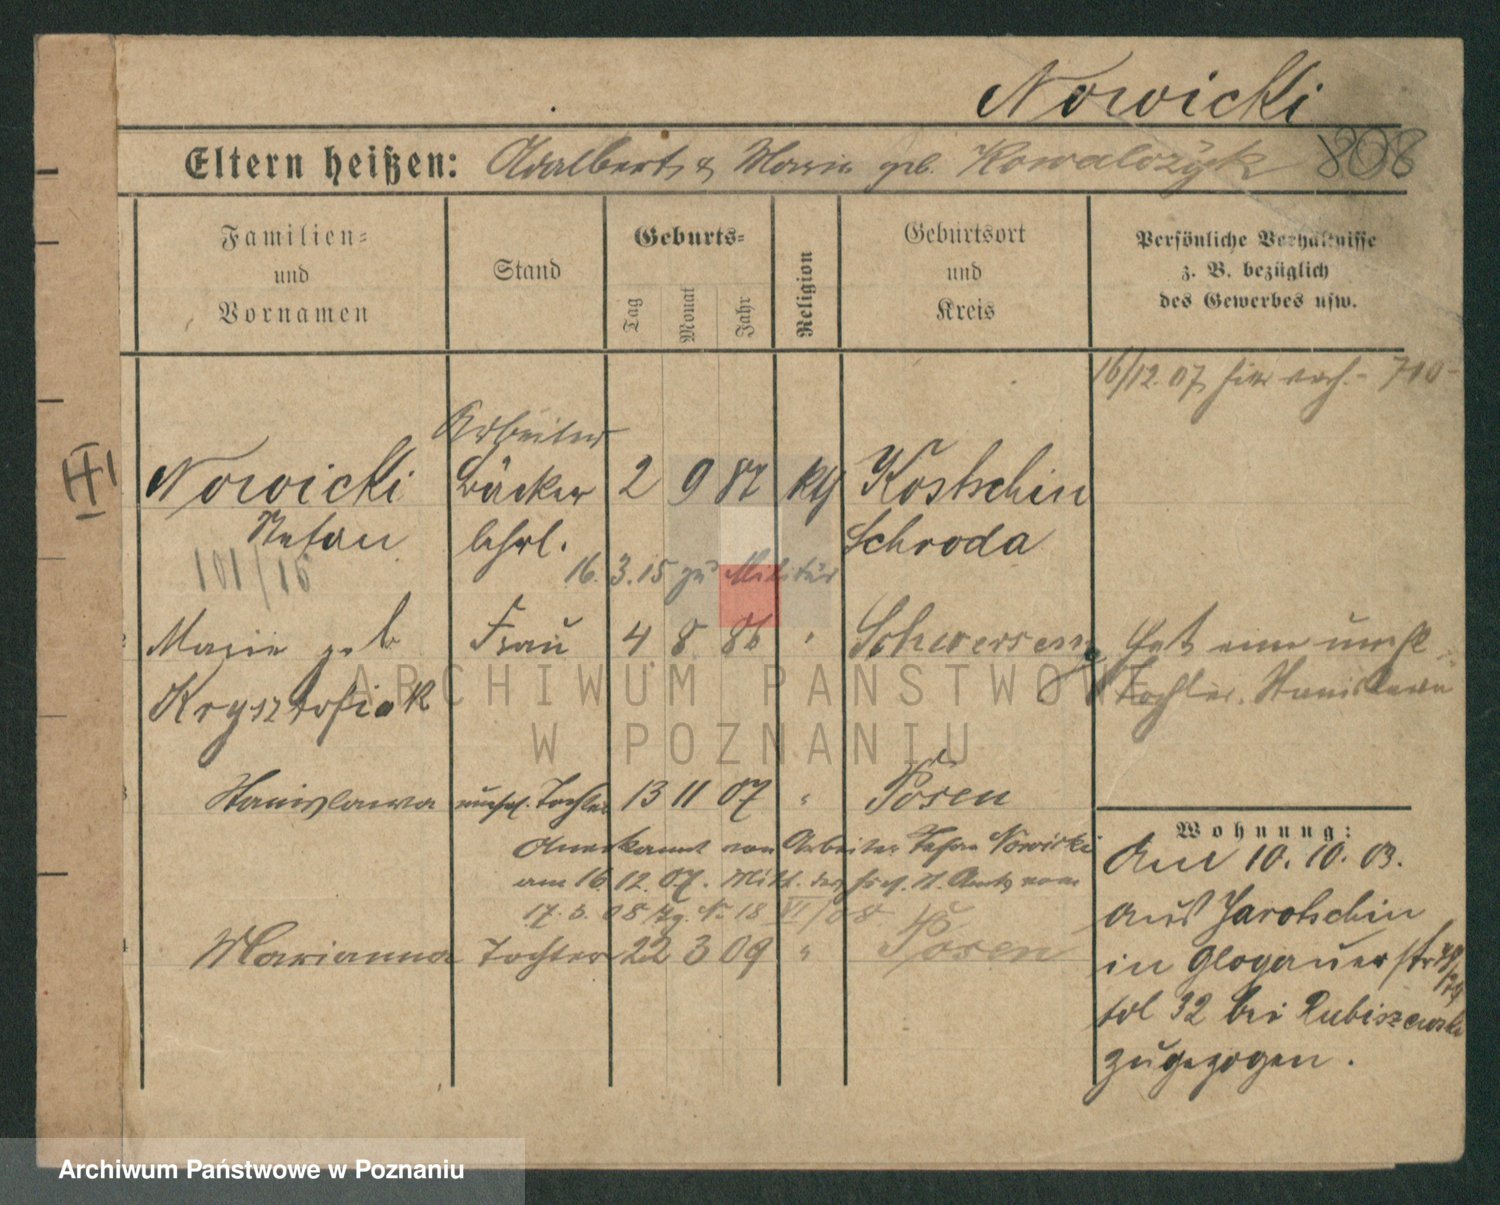 Nowicki
Eltern heißen: Adalbert & Marie geb. Kowalczyk 808
Familien=
und
Vornamen
Stand
Geburts=
Tag
Monat
Jahr
Religion
Geburtsort
und
Kreis
Persönliche Verhältnisse
z. B. bezüglich
des Gewerbes usw.
16/12.07 hier 700
Arbeiter
Nowicki Bäcker 2 9 87 kth Kostschin
Stefan lehrl. Schroda
101/16
16. 3. 15 zu Militär
Marie geb Frau 4 8 86 " Schwersenz hat eine unehl.
Krysztofiak Tochter Stanislawa
Stanislawa unehel. Tochter 13 11 07 " Posen
Anerkannt von Arbeiter Stefan Nowicki
am 16 12. 07. Mitt. des St. Amts vom
17. 3. 08 Tg. No 18 VI/08
Marianna Tochter 22 3 09 " Posen
Wohnung:
Am 10. 10. 03.
aus Jarotschin
in Glogauerstr
32 bei Rubiszewski
zugezogen.
ARCHIWUM PAŃSTWOWE
W POZNANIU
Archiwum Państwowe w Poznaniu